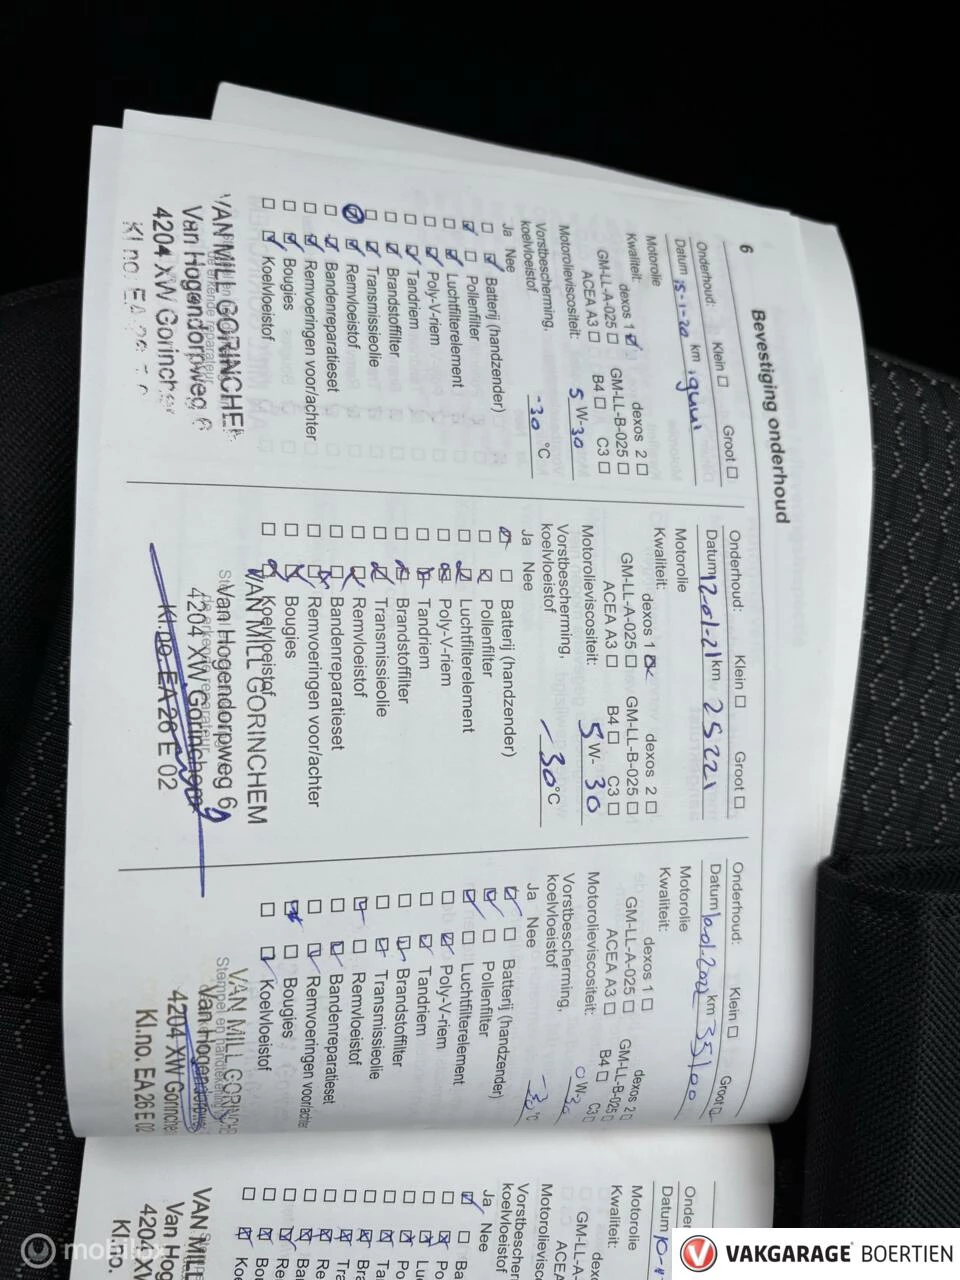 6
Bevestiging onderhoud
Onderhoud: Klein Groot
Datum 15-1-20 km
Motorolie
Kwaliteit: dexos 1 dexos 2
GM-LL-A-025 GM-LL-B-025
ACEA A3 B4 C3
Motorolieviscositeit: 5 W-30
Vorstbescherming,
koelvloeistof -30 °C
Ja Nee
Batterij (handzender)
Pollenfilter
Luchtfilterelement
Poly-V-riem
Tandriem
Brandstoffilter
Transmissieolie
Remvloeistof
Bandenreparatieset
Remvoeringen voor/achter
Bougies
Koelvloeistof
VAN MILL GORINCHEM
Van Hogendorpweg 6
4204 XW Gorinchem
Onderhoud: Klein Groot
Datum 12-01-21 km 25221
Motorolie
Kwaliteit: dexos 1 dexos 2
GM-LL-A-025 GM-LL-B-025
ACEA A3 B4 C3
Motorolieviscositeit: 5 W- 30
Vorstbescherming,
koelvloeistof -30 °C
Ja Nee
Batterij (handzender)
Pollenfilter
Luchtfilterelement
Poly-V-riem
Tandriem
Brandstoffilter
Transmissieolie
Remvloeistof
Bandenreparatieset
Remvoeringen voor/achter
Bougies
Koelvloeistof
VAN MILL GORINCHEM
Van Hogendorpweg 6
4204 XW Gorinchem
Kl.no. EA 26 E 02
Onderhoud: Klein Groot
Datum km 35100
Motorolie
Kwaliteit: dexos 1 dexos 2
GM-LL-A-025 GM-LL-B-025
ACEA A3 B4 C3
Motorolieviscositeit: 0 W-30
Vorstbescherming,
koelvloeistof -30 °C
Ja Nee
Batterij (handzender)
Pollenfilter
Luchtfilterelement
Poly-V-riem
Tandriem
Brandstoffilter
Transmissieolie
Remvloeistof
Bandenreparatieset
Remvoeringen voor/achter
Bougies
Koelvloeistof
Stempel en handtekening
VAN MILL GORINCHE
Van Hogendorpweg
4204 XW Gorinche
Kl.no. EA 26 E 02
Onder
Datum 10-
Motorolie
Kwaliteit:
GM-LL-
ACEA
Motorolievisc
Vorstbescherm
koelvloeistof
Ja Nee
Ba
Po
Lu
Po
Ta
Br
Tra
Re
Ba
Re
Bou
Koe
VAN MILL
Van Hog
4204 XW
Kl.no.
mobilox
VAKGARAGE BOERTIEN